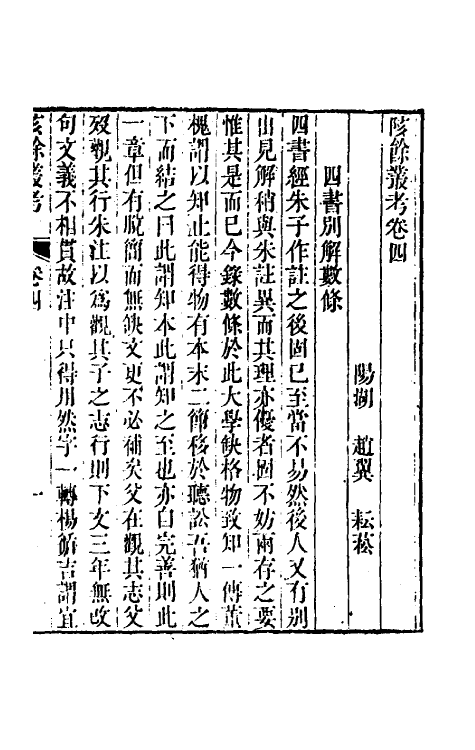 陔餘叢考卷四
陽湖　趙翼　耘菘
四書別解數條
四書經朱子作註之後固已至當不易然後人又有別
出見解稍與朱註異而其理亦優者固不妨兩存之要
惟其是而已今錄數條於此大學缺格物致知一傳董
槐謂以知止能得物有本末二節移於聽訟吾猶人之
下而結之曰此謂知本此謂知之至也亦自完善則此
一章但有脫簡而無缺文更不必補矣父在觀其志父
歿觀其行朱注以爲觀其子之志行則下文三年無改
句文義不相貫故注中只得用然字一轉楊循吉謂宜
陔餘叢考　卷四　一